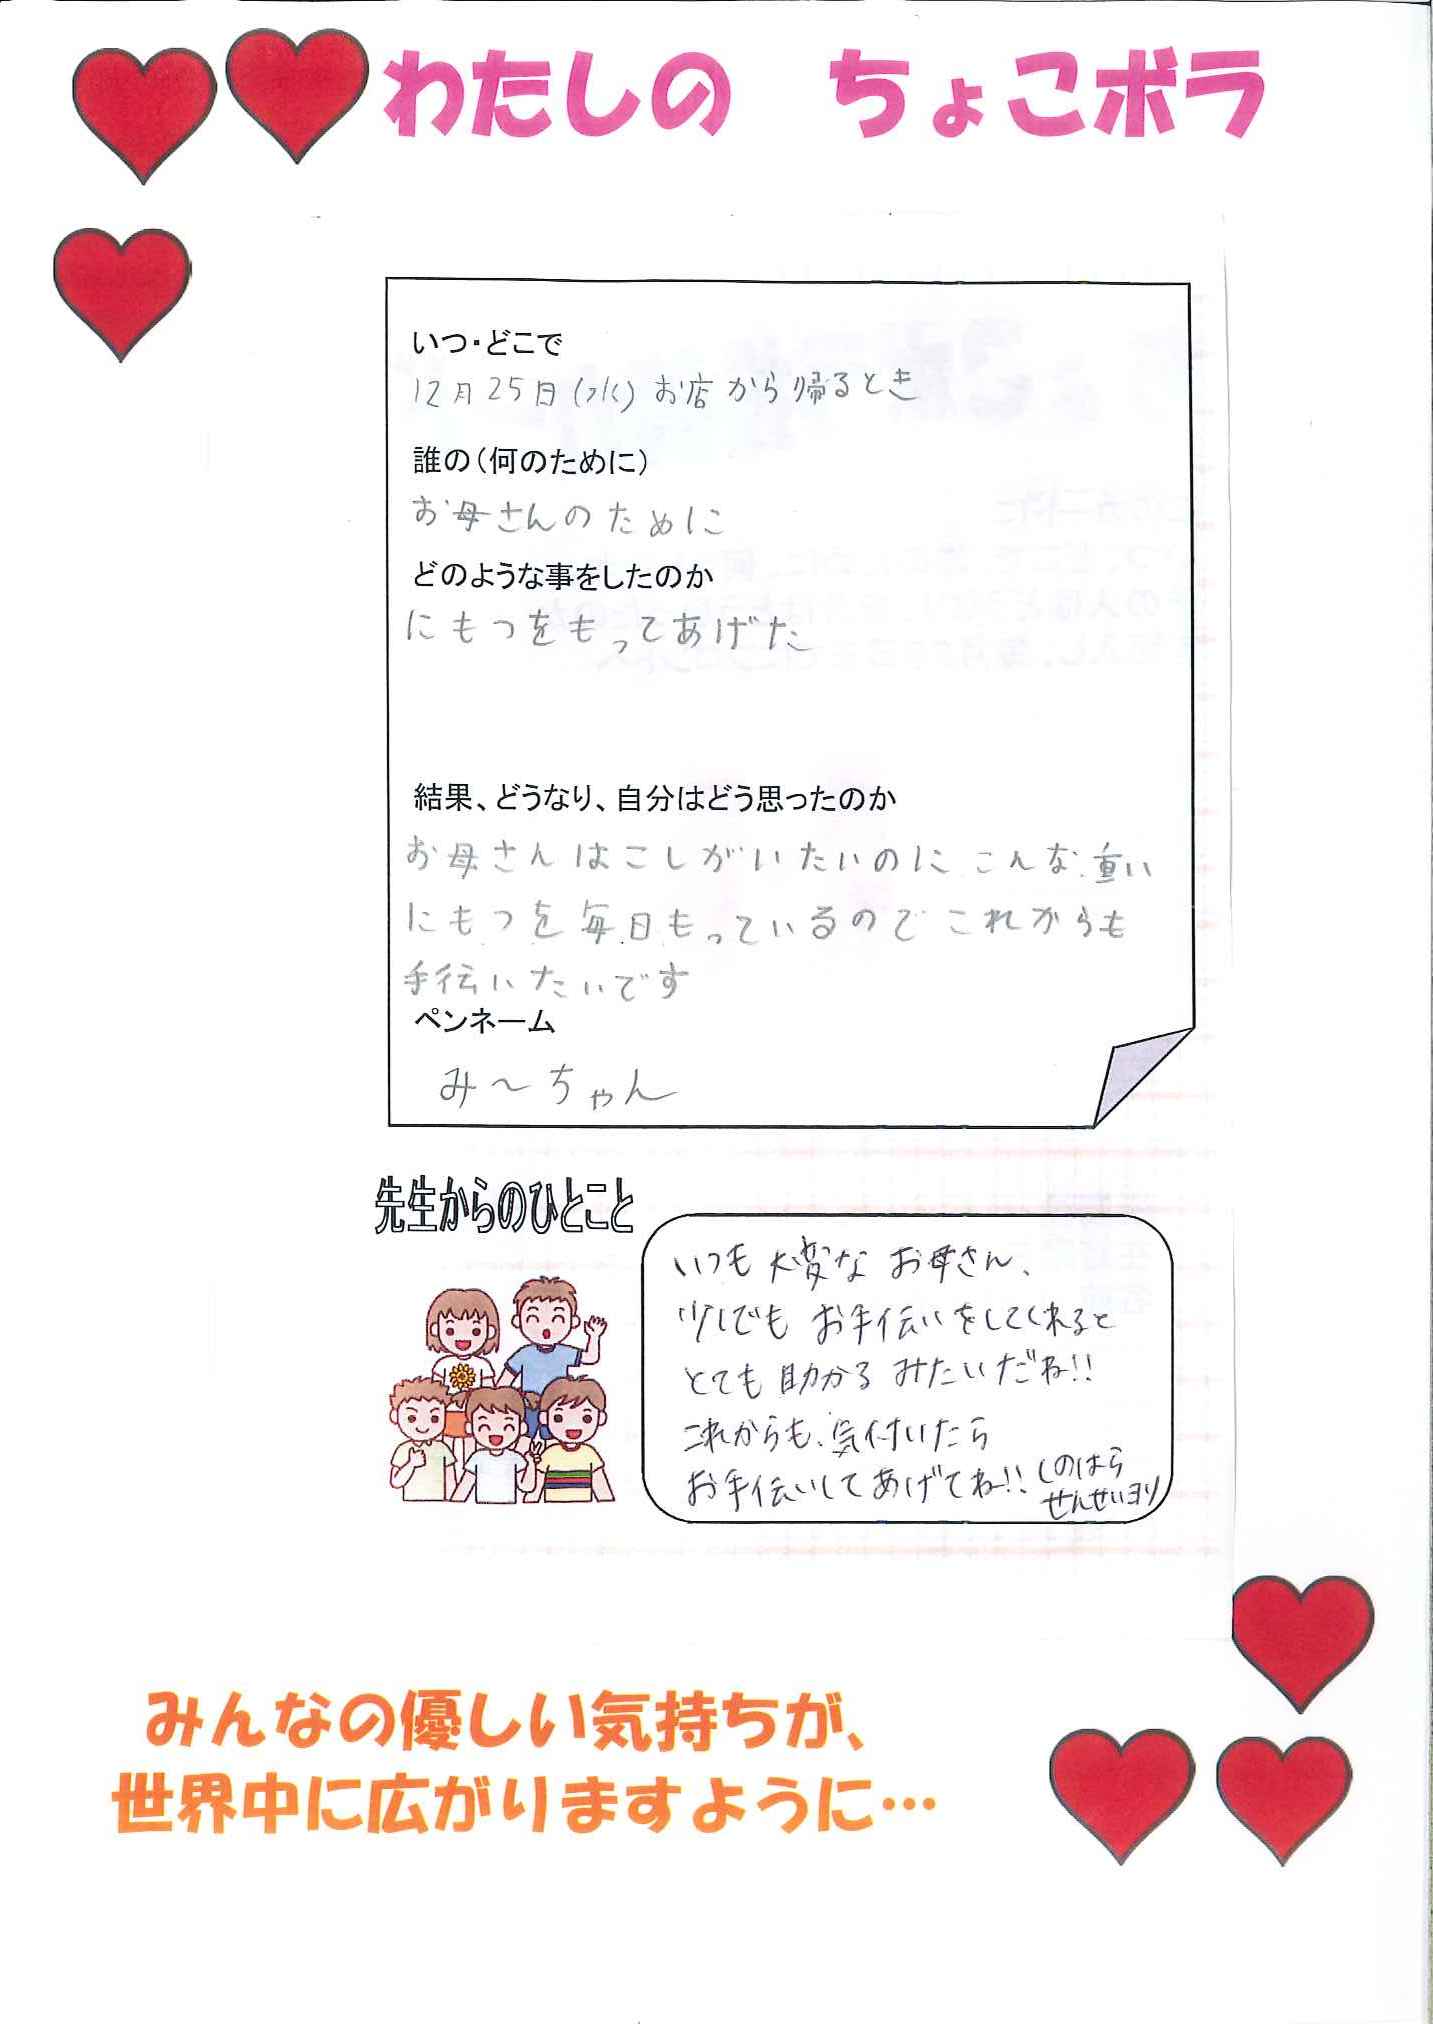 わたしの　ちょこボラ
いつ・どこで
12月25日(水) お店から帰るとき
誰の（何のために）
お母さんのために
どのような事をしたのか
にもつをもってあげた
結果、どうなり、自分はどう思ったのか
お母さんはこしがいたいのに こんな重い
にもつを毎日もっているのでこれからも
手伝いたいです
ペンネーム
み〜ちゃん
先生からのひとこと
いつも大変なお母さん、
少しでもお手伝いをしてくれると
とても助かるみたいだね!!
これからも、気付いたら
お手伝いしてあげてね!!
しのはら
せんせいヨリ
みんなの優しい気持ちが、
世界中に広がりますように…